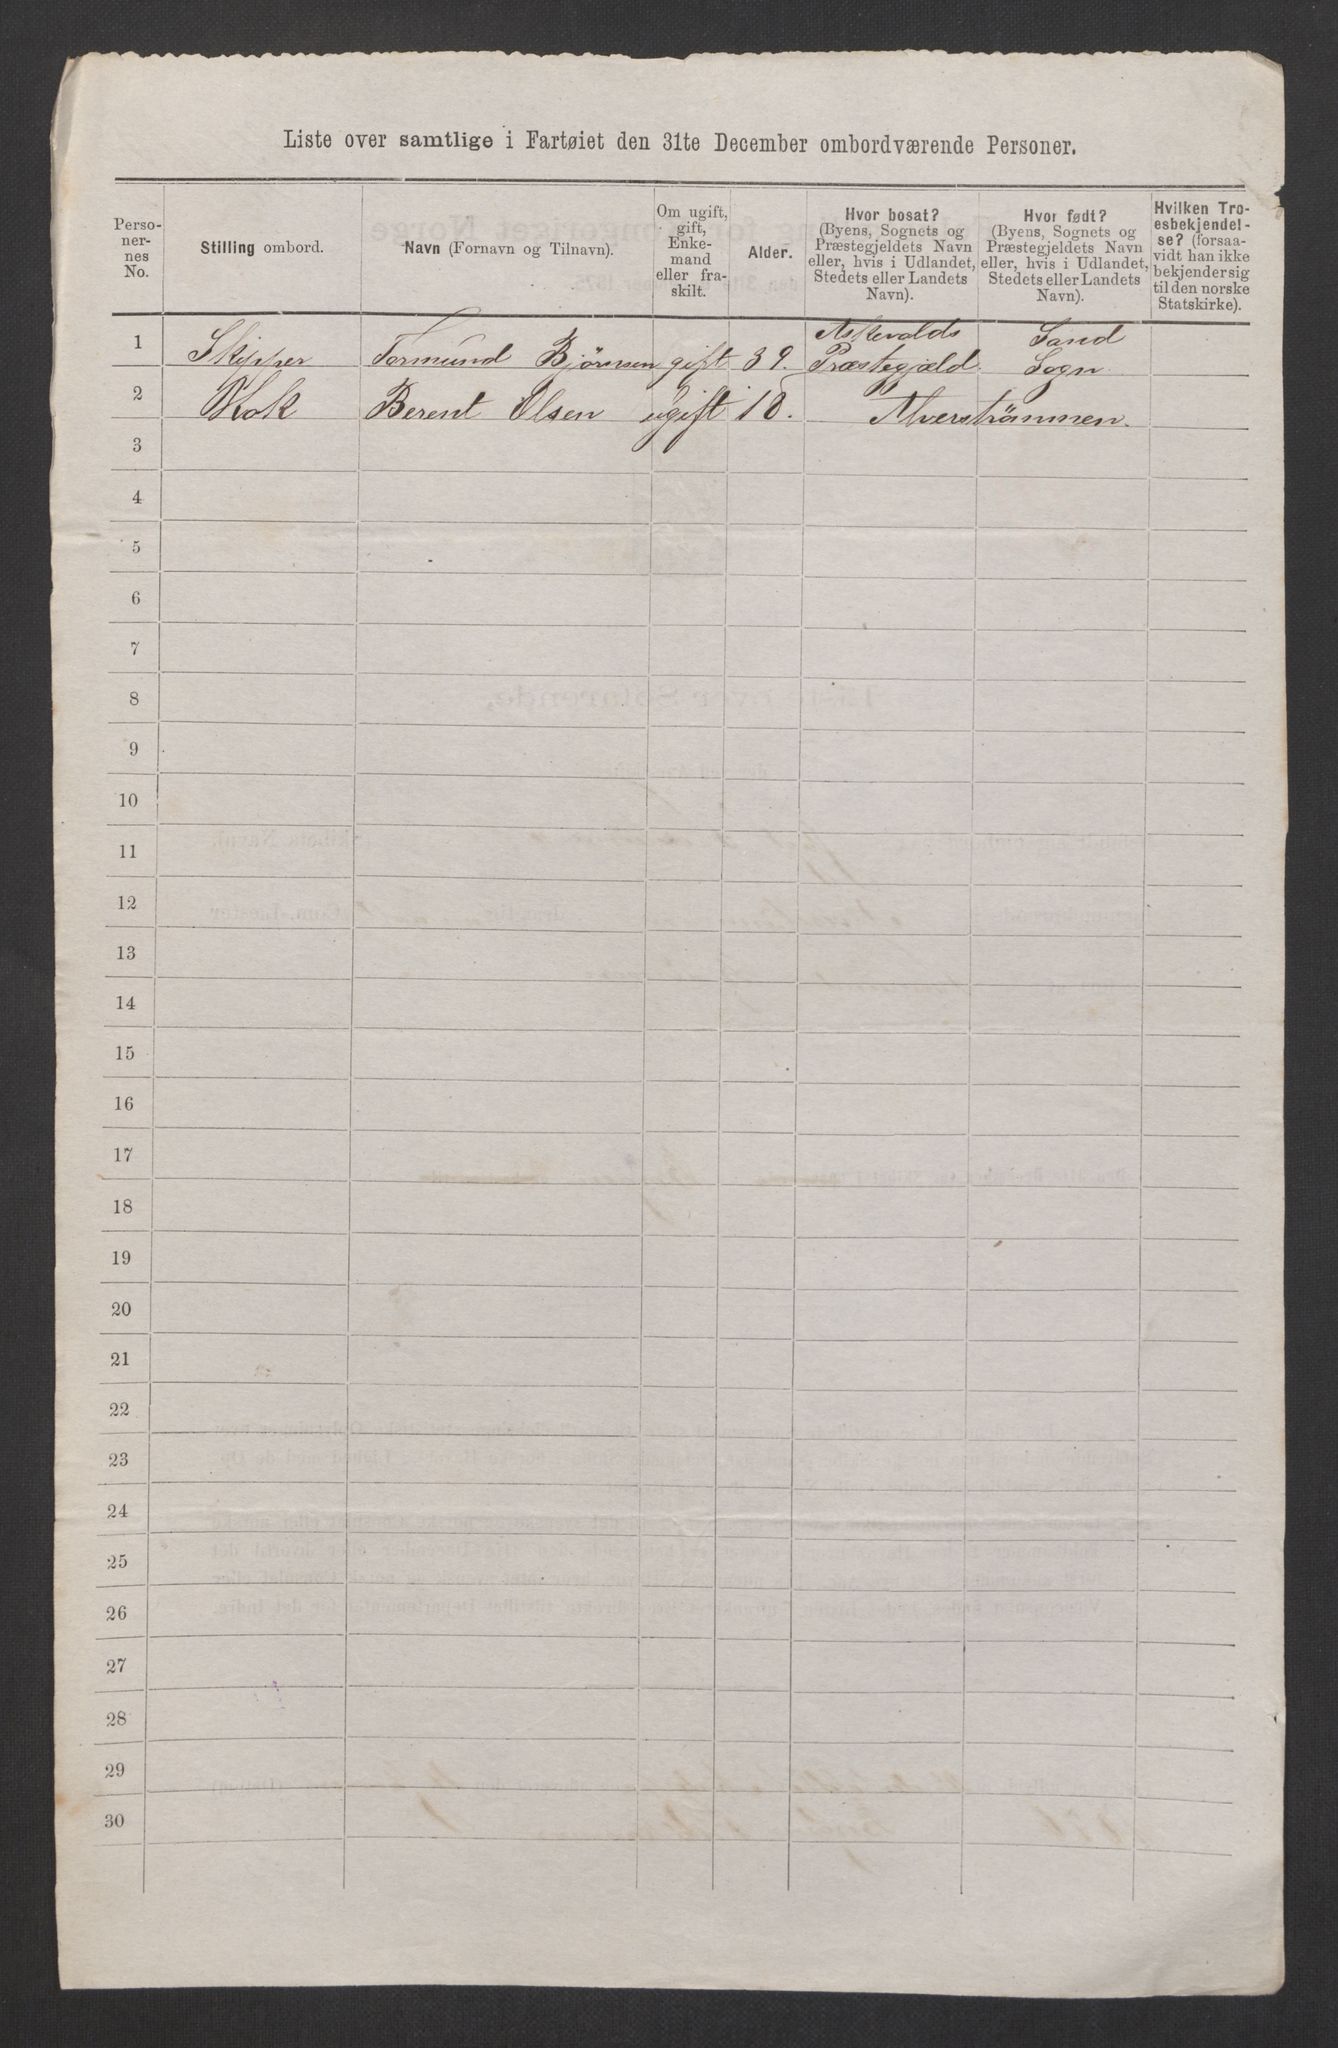 Liste over samtlige i Fartøiet den 31te December ombordværende Personer.
Perso-
ner-
nes
No.
Stilling ombord.
Navn (Fornavn og Tilnavn).
Om ugift,
gift,
Enke-
mand
eller fra-
skilt.
Alder.
Hvor bosat?
(Byens, Sognets og
Præstegjeldets Navn
eller, hvis i Udlandet,
Stedets eller Landets
Navn).
Hvor født?
(Byens, Sognets og
Præstegjeldets Navn
eller, hvis i Udlandet,
Stedets eller Landets
Navn).
Hvilken Tro-
esbekjendel-
se? (forsaa-
vidt han ikke
bekjender sig
til den norske
Statskirke).
Askevolds Sand
1 Skipper Tormund Bjørnsen gift 39. Præstegjæld. Sogn
2 Kok Berent Olsen ugift 18. Alverströmmen.
3
4
5
6
7
8
9
10
11
12
13
14
15
16
17
18
19
20
21
22
23
24
25
26
27
28
29
30